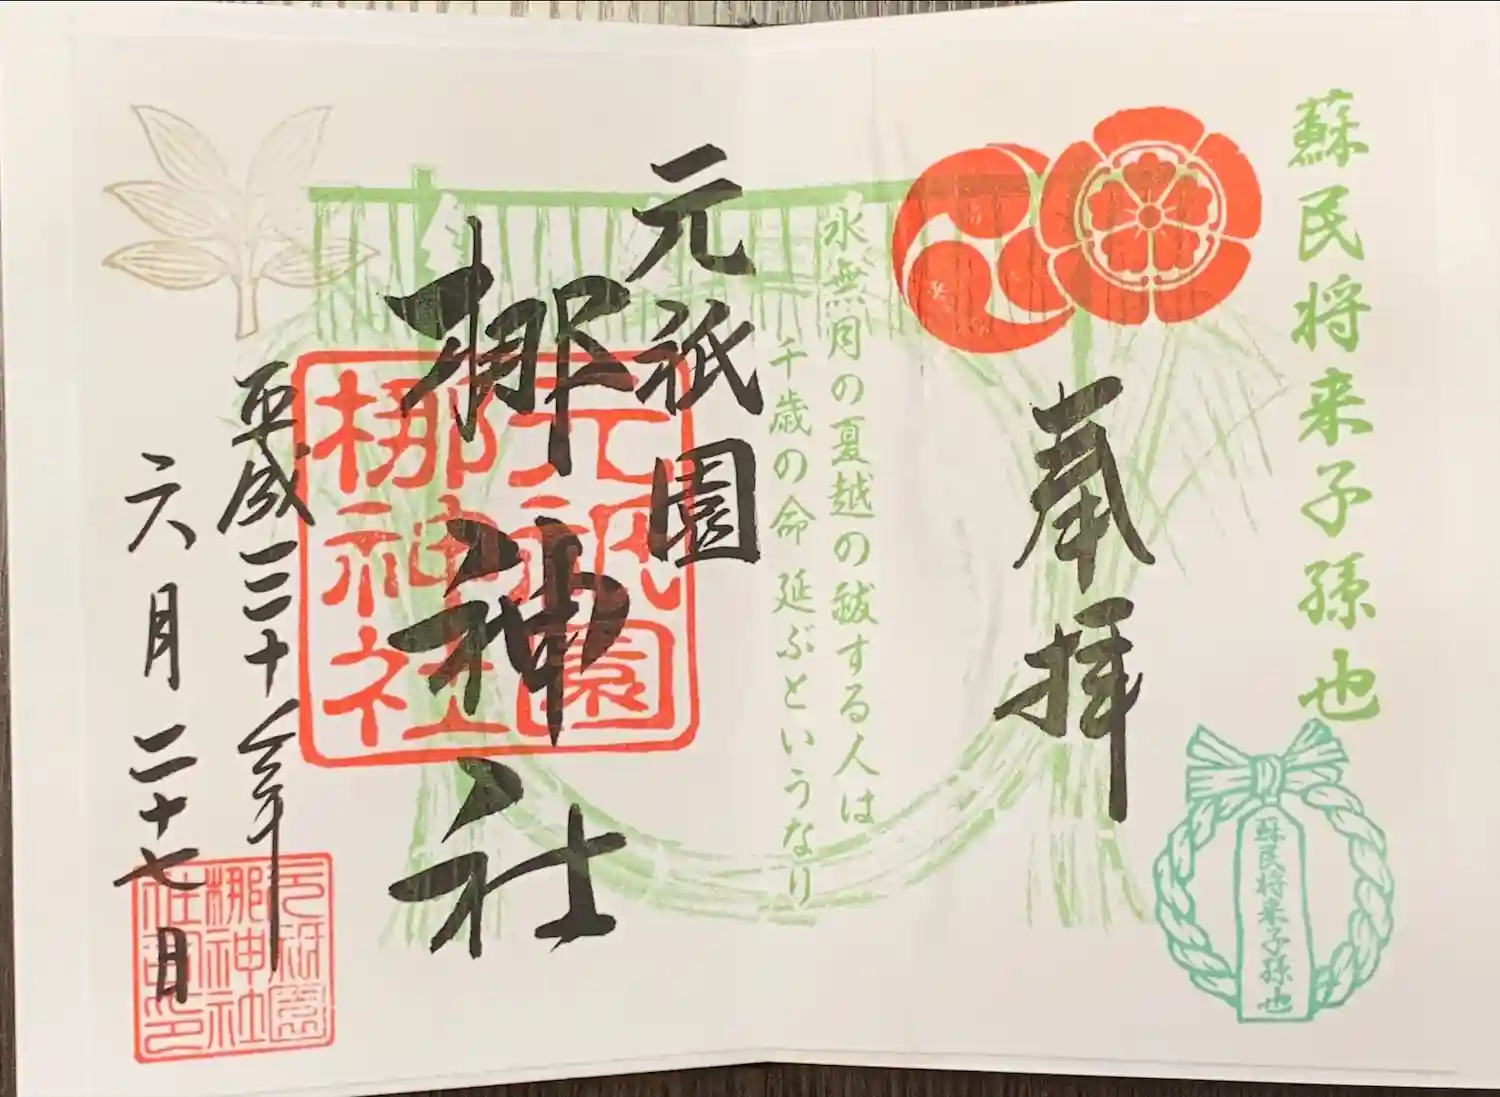 蘇民将来子孫也
蘇民将来子孫也
奉拝
水無月の夏越の祓する人は
千歳の命 延ぶというなり
元祇園
梛神社
元祇園
梛神社
平成三十年
六月二十七日
元祇園
梛神社